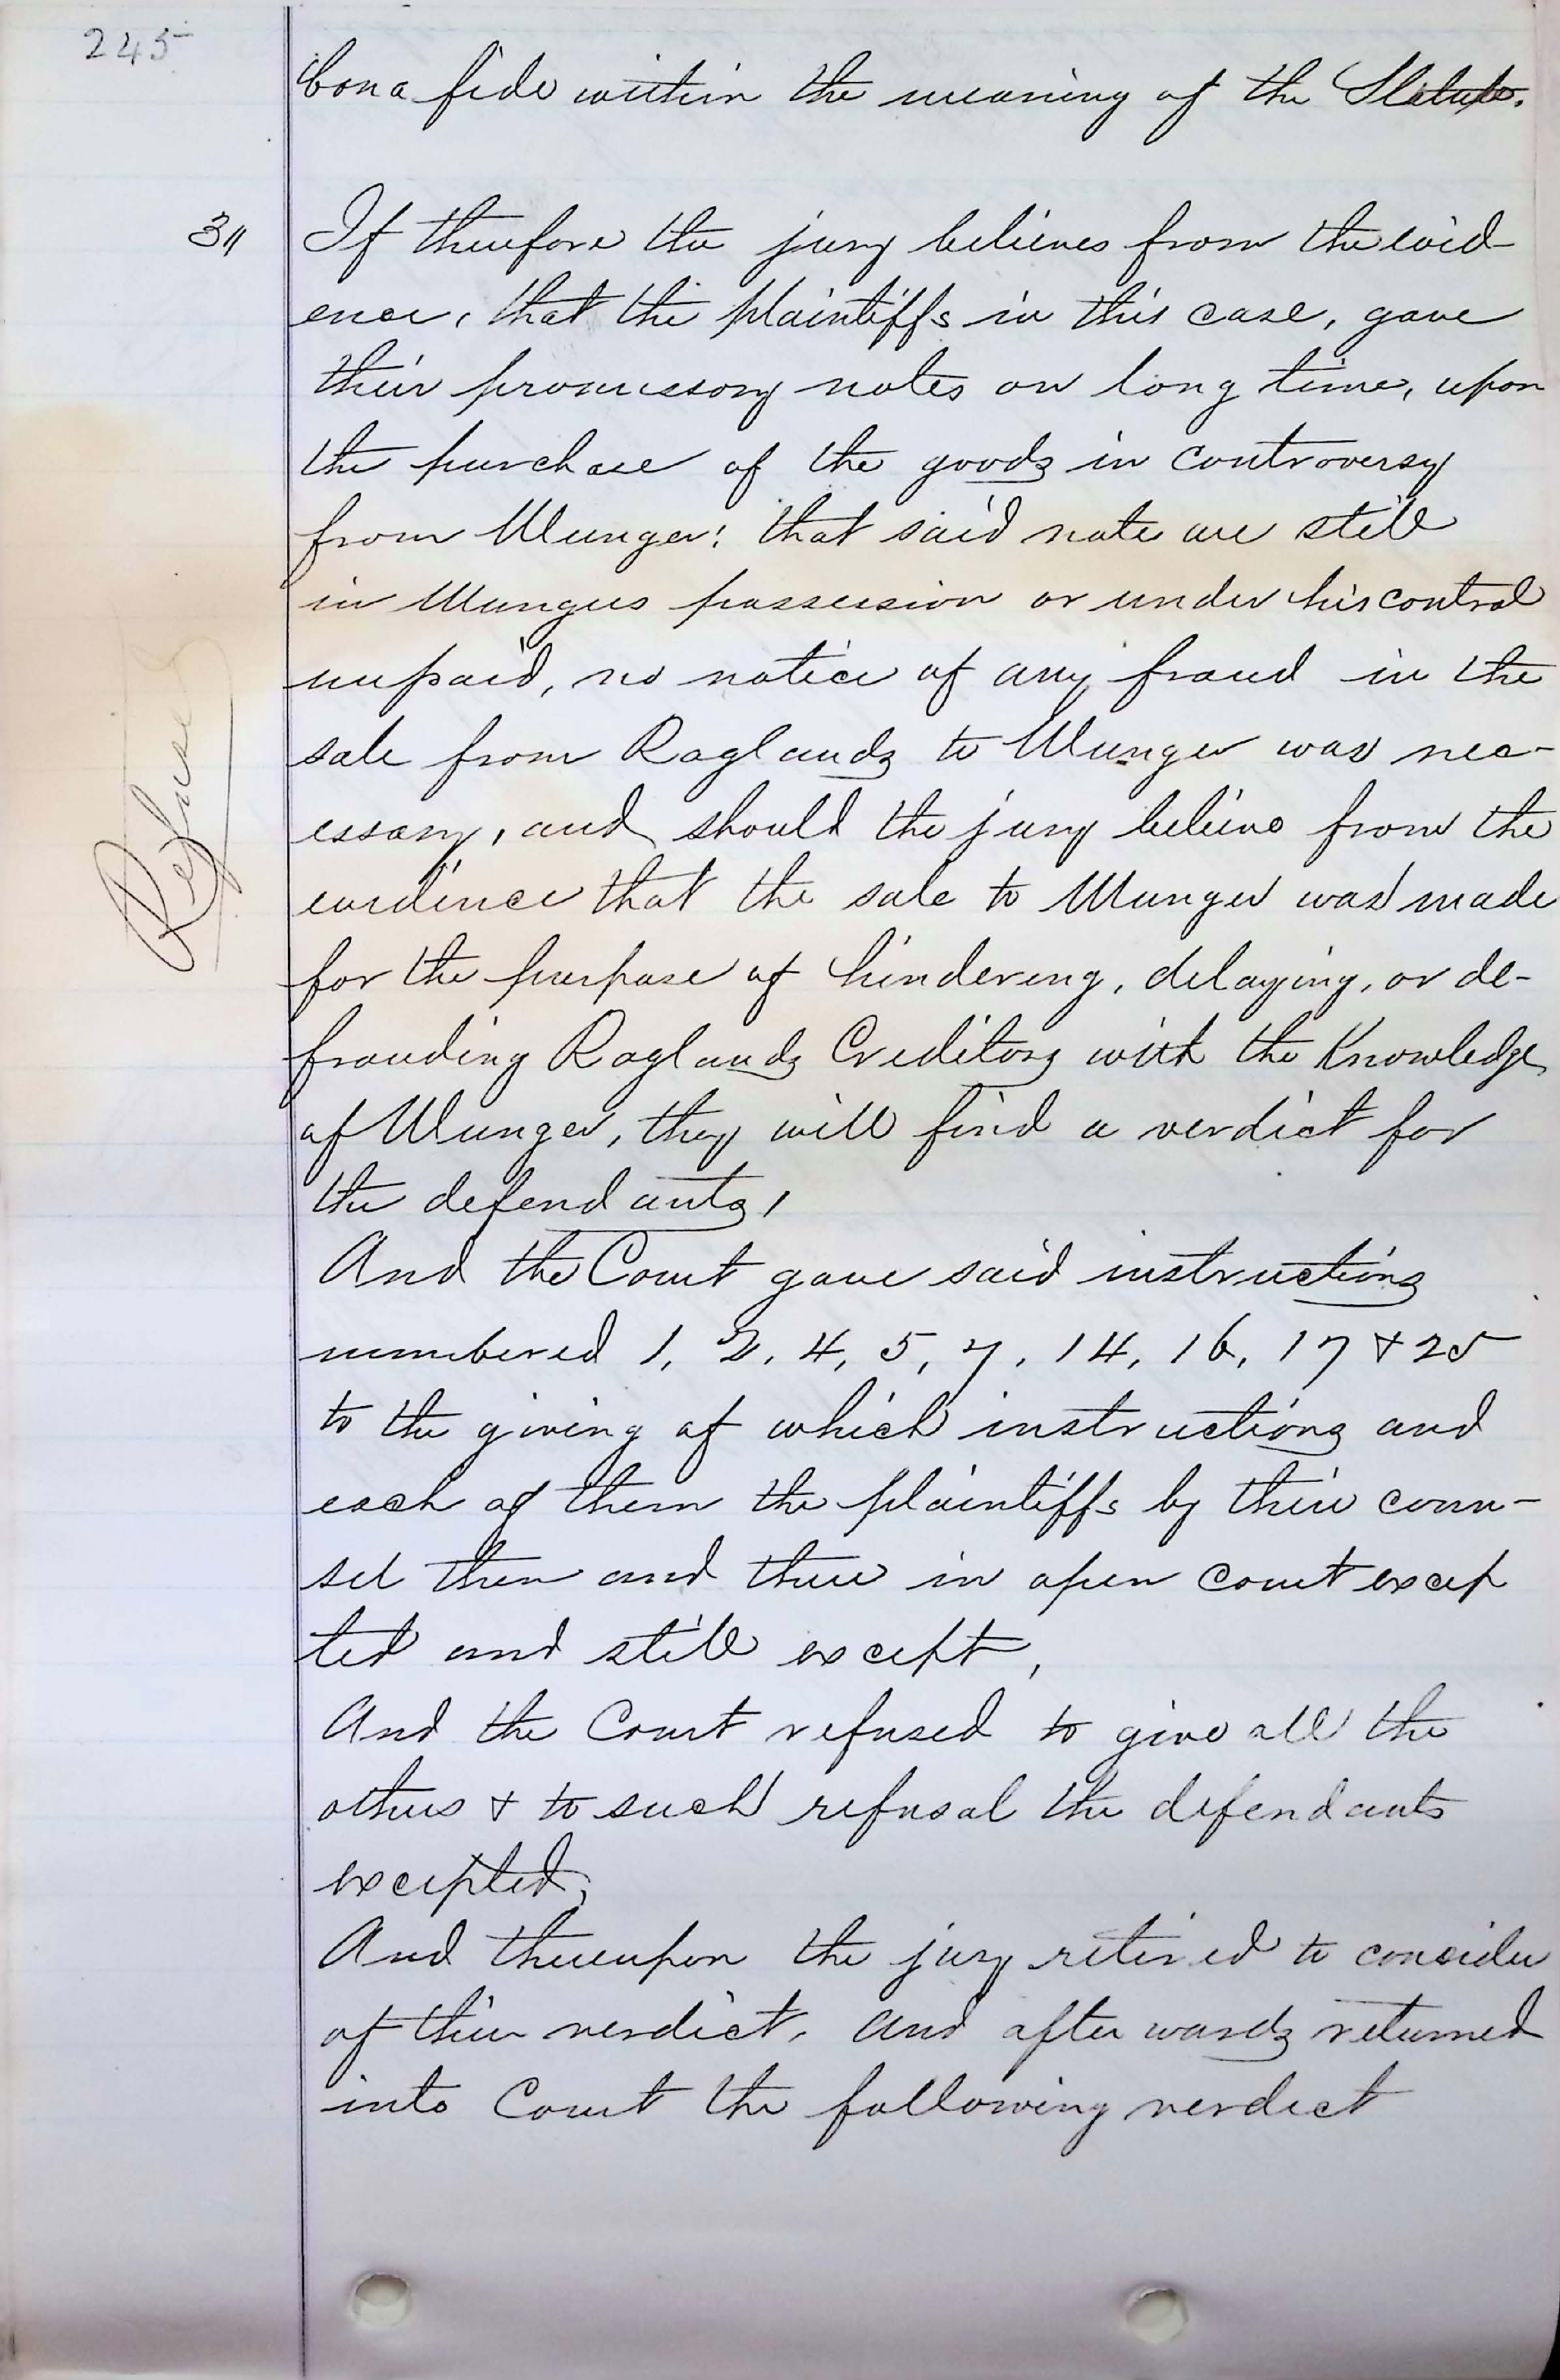 245
bona fide within the meaning of the Statute.
31 If therefore the jury believes from the evid-
ence, that the plaintiffs in this case, gave
their promissory notes on long time, upon
the purchase of the goods in controversy
from Munger; that said note are still
in Mungers possession or under his control
unpaid, no notice of any fraud in the
sale from Raglands to Munger was nec-
essary, and should the jury believe from the
evidence that the sale to Munger was made
for the purpose of hindering, delaying, or de-
frauding Raglands Creditors with the Knowledge
of Munger, they will find a verdict for
the defendants,
Refused
And the Court gave said instructions
numbered 1, 2, 4, 5, 7, 14, 16, 17 & 25
to the giving of which instructions and
each of them the plaintiffs by their coun-
sel then and there in open Court excep
ted and still except,
And the Court refused to give all the
others & to such refusal the defendants
excepted,
And thereupon the jury retired to consider
of their verdict, and after wards returned
into Court the following verdict